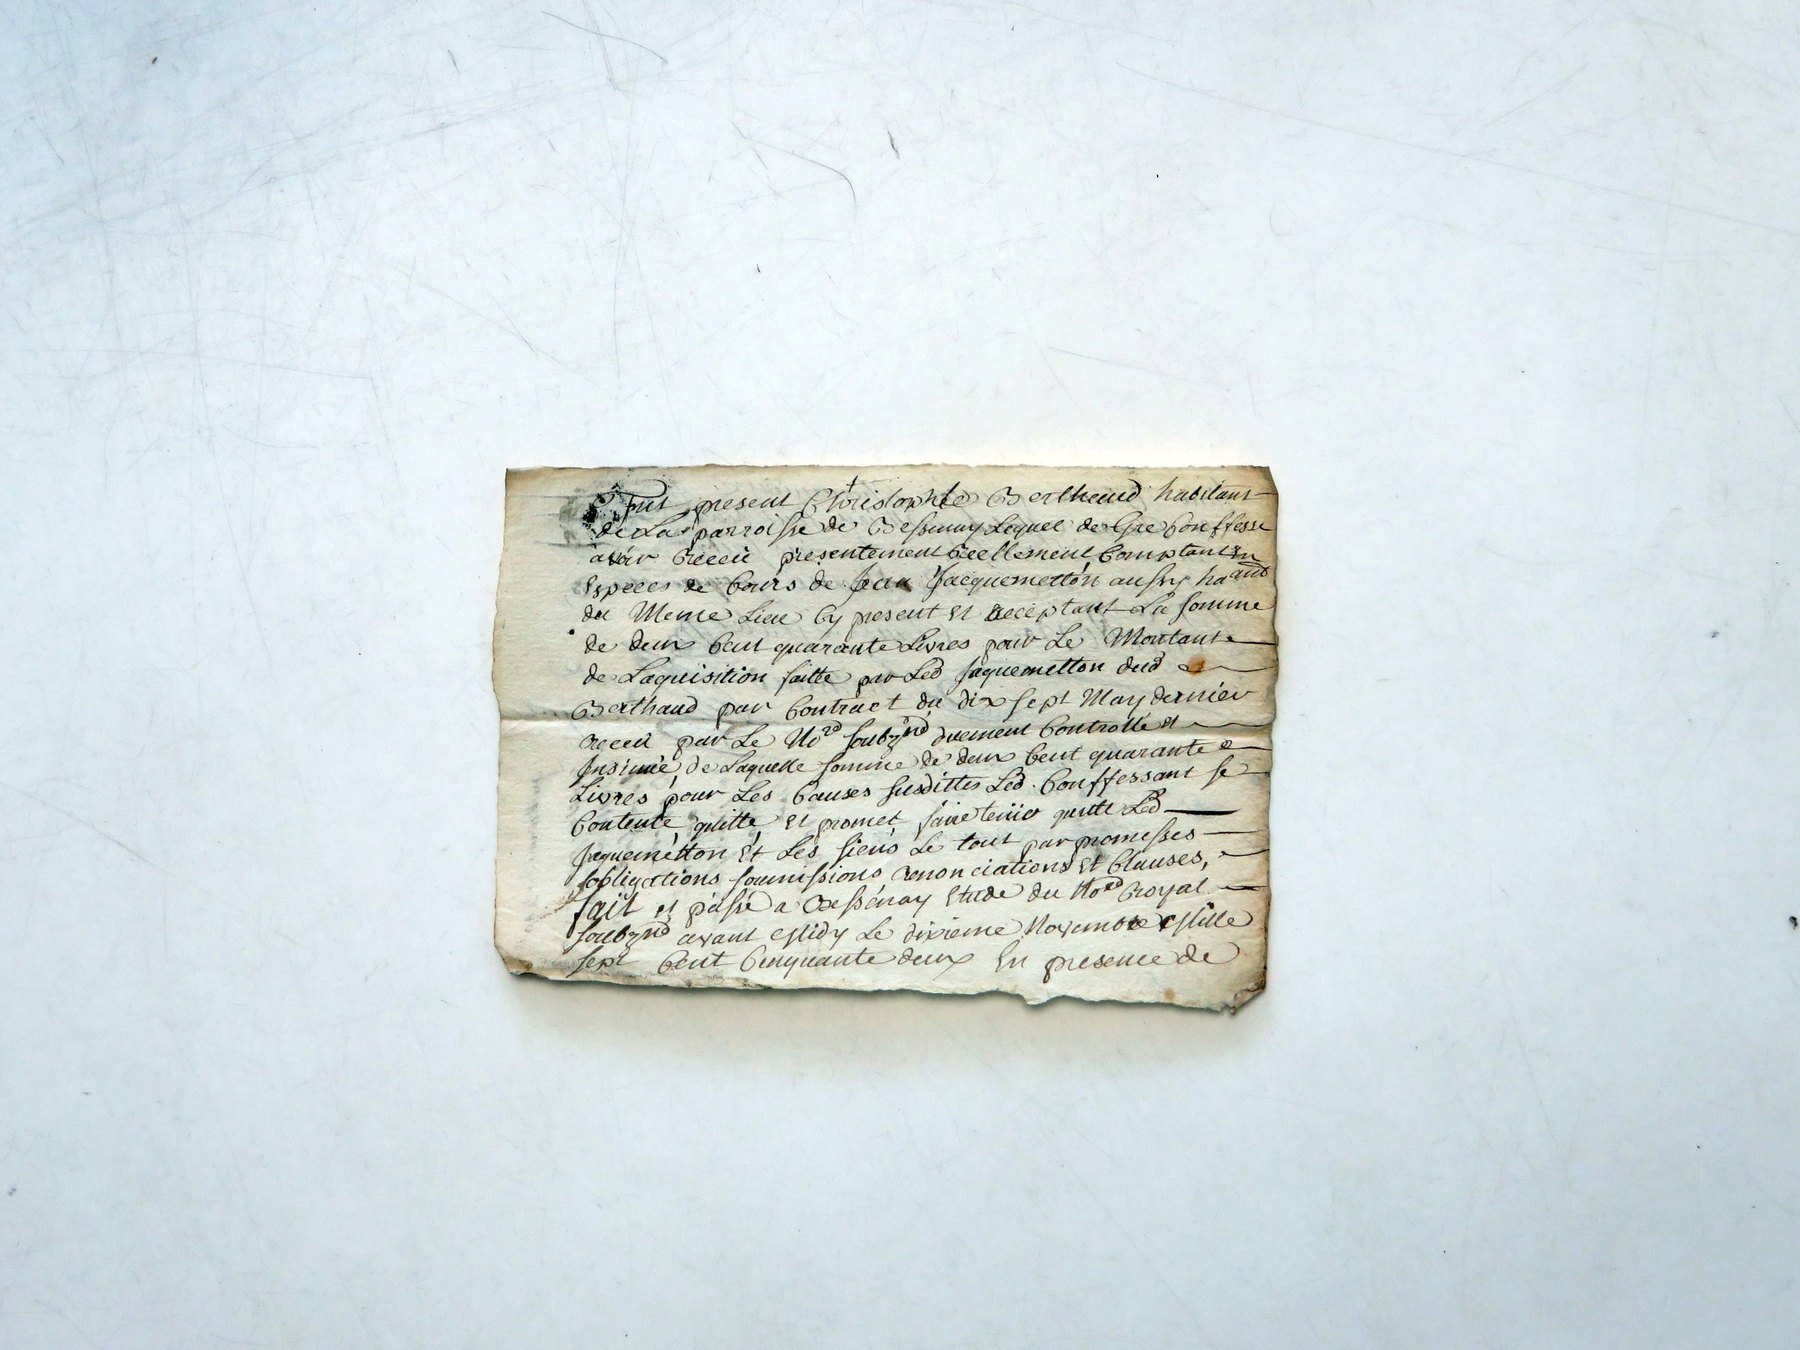 Fut present Christophle Berthaud habitant
de La parroisse de Bessenay Lequel de Gré Conffesse
avoir Receü presentement Reellement Comptant En
Especes de Cours de Jean Jacquemetton aussy ha.ant
du Meme Lieu Cy present et acceptant La somme
de deux Cent quarante Livres pour Le Montant
de Laquisition faitte par Led Jaquemetton dud
Berthaud par Contract du dix sept May dernier
Receü par Le No.re soubz.né duement Controllé et
Insinüé, de Laquelle somme de deux Cent quarante
Livres pour Les Causes susdittes Led. Conffessant se
Contente, quitte, et promet faire tenir quitte Led
Jaquemetton Et Les siens Le tout par promesses
obligations soumissions renonciations et Clauses,
fait et passé a Bessenay Etude du No.re Royal
soubz.né avant Midy Le dixieme Novembre Mille
sept Cent Cinquante deux En presence de